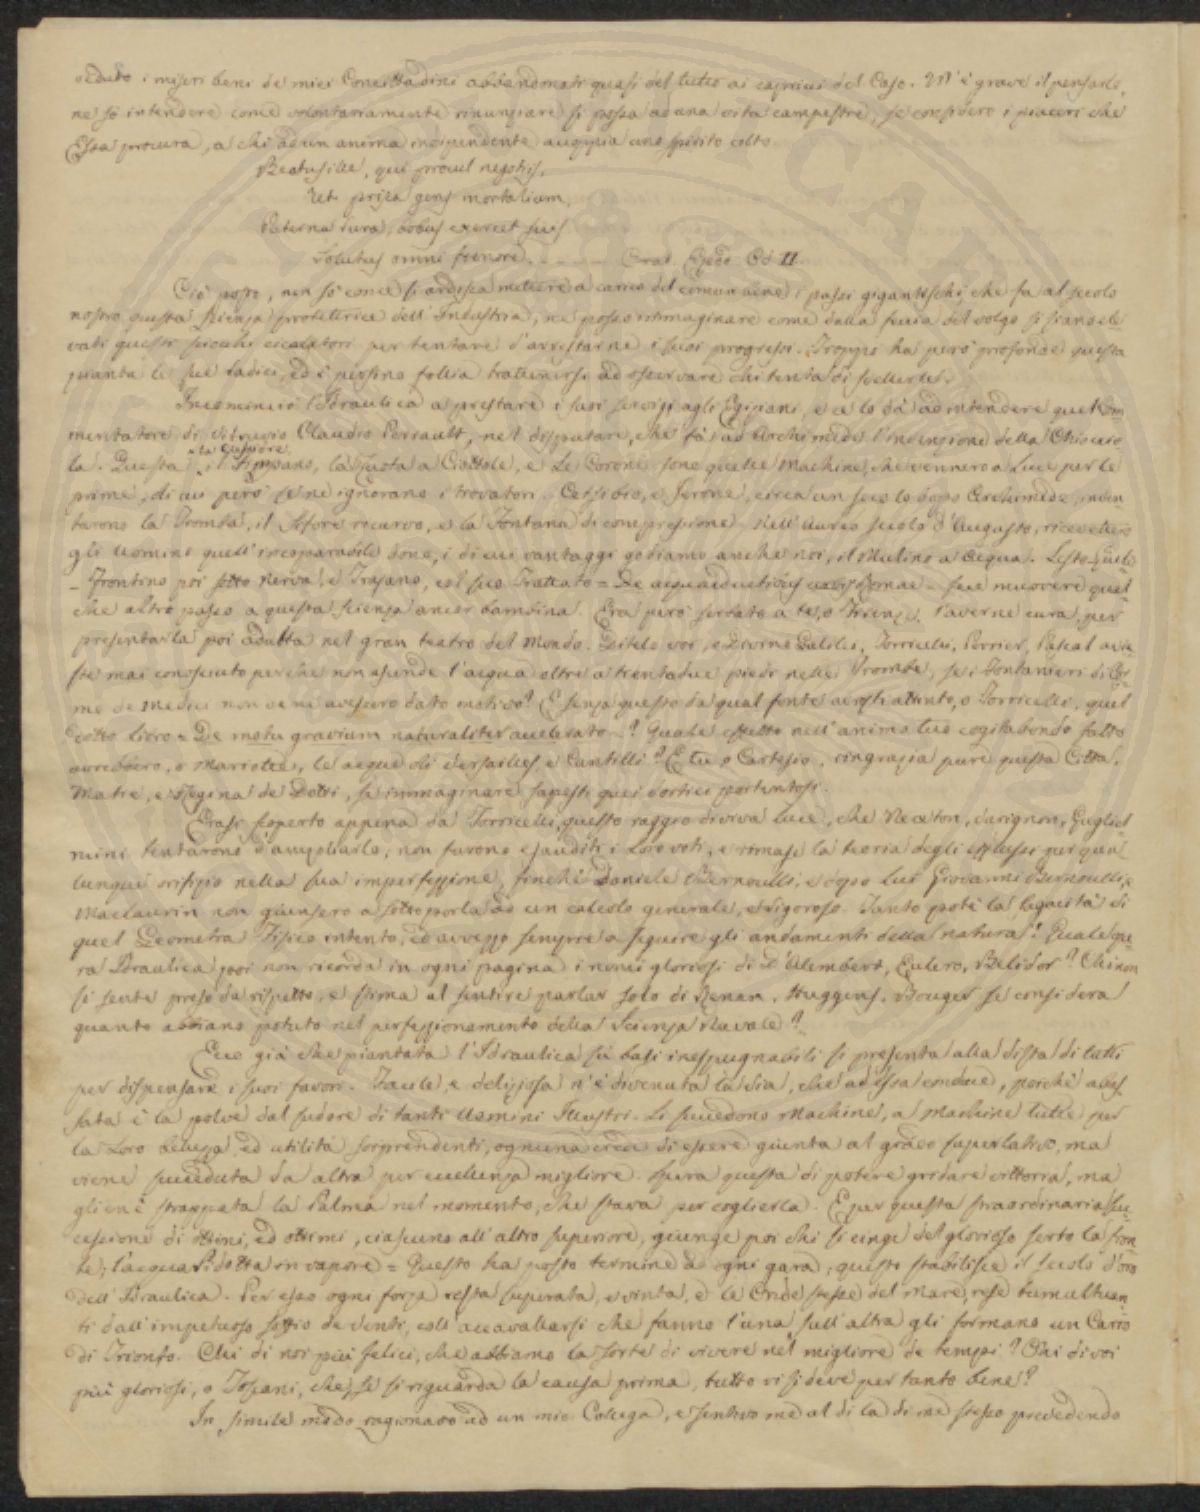 veduto i miseri beni de miei Concittadini abbandonati quasi del tutto ai capricci del Caso. M'è grave il pensarlo,
ne sò intendere come volontariamente rinunziare si possa ad una vita campestre, se considero i piaceri che
Essa procura, a chi ad un anima indipendente accoppia uno spirito colto.
Beatus ille, qui procul negotiis,
Ut prisca gens mortalium,
Paterna rura bobus exercet suis
Solutus omni fenore. - - - - - Orat. Epodo Od II.
Ciò posto, non sò come si ardisca mettere a carico del comun bene i passi giganteschi, che fa al secolo
nostro questa Scienza protettrice dell'Industria, ne posso immaginare come dalla feccia del volgo si siano ele-
vati questi troppo ha però profonde questa
pianta le sue radici, ed è persino follia trattenersi ad osservare chi tenta di svellerle.
Incominciò l'Idraulica a prestare i suoi servigi agli Egiziani, e ce lo dà ad intendere quel Com-
mentatore di Vitruvio Claudio Perrault, nel disputare, che fà ad Archimede l'invenzione della Chiocio-
la. Questa, il Timpano, la Ruota a Ciottole, e Le Corone sono quelle Machine, che vennero a Luce per le
prime, di cui però se ne ignorano i trovatori. Ctesibio, e Jerone, circa un secolo dopo Archimede, inven-
tarono la Tromba, il Sifone ricurvo, e la Fontana di compressione. Nell'Aureo secolo d'Augusto, ricevettero
gli Uomini quell'incomparabile dono, i di cui vantaggi godiamo anche noi, il Mulino a Acqua. Sesto Giulio
- Frontino poi sotto Nerva, e Trajano, col suo Trattato = De aquaeductibus urbis Romae = fece muovere qual-
che altro passo a questa scienza ancor bambina. Era però serbato a te, o Firenze, l'averne cura, per
presentarla poi adulta nel gran teatro del Mondo. Ditelo voi, o Divino Galileo, Torricelli, Perrier, Pascal avre-
ste mai conosciuto perche non ascende l'acqua oltre a trentadue piedi nelle Trombe, se i Fontanieri di Cos-
mo de Medici non ve ne avessero dato motivo? E senza questo da qual fonte avresti attinto, o Torricelli, quel
dotto libro = De motu gravium naturaliter accelerato = ? Quale effetto nell'animo tuo cogitabondo fatto
avrebbero, o Mariotte, le acque di Versailles e Cantilli? E tu, o Cartesio, ringrazia pure questa Città,
Madre, e Regina de Dotti, se immaginare sapesti quei vortici portentosi.
Erasi scoperto appena da Torricelli, questo raggio di viva luce, che Newton, Varignon, Gugliel-
mini tentarono d'ampliarlo, non furono esauditi i Loro voti, e rimase la teoria degli efflussi per qua-
lunque orifizio nella sua imperfezione, finchè Daniele Bernoulli, e dopo Lui Giovanni Bernoulli, e
Maclaurin non giunsero a sottoporla ad un calcolo generale, e rigoroso. Tanto potè la sagacità di
quel Geometra Fisico intento, ed avvezzo sempre a seguire gli andamenti della natura! Quale ope-
ra Idraulica poi non ricorda in ogni pagina i nomi gloriosi di D'Alembert, Eulero, Belidor? Chi non
si sente preso da rispetto, e stima al sentire parlar solo di Renau, Huggens, Bouger se considera
quanto abbiano potuto nel perfezionamento della Scienza Navale?
Ecco già che piantata l'Idraulica sù basi inespugnabili si presenta alla vista di tutti
per dispensare i suoi favori. Facile, e deliziosa n'è divenuta la Via, che ad essa conduce, poichè abas-
sata è la polve dal sudore di tanti Uomini Illustri. Si succedono Machine, a Machine tutte per
la Loro bellezza, ed utilità sorprendenti, ognuna crede di essere giunta al grado superlativo, ma
viene succeduta da altra per eccellenza migliore. Spera questa di potere gridare vittoria, ma
gli en'è strappata la Palma nel momento, che stava per coglierla. E per questa straordinaria suc-
cessione di ottimi, ed ottimi, ciascuno all'altro superiore, giunge poi chi si cinge del glorioso serto la fron-
te; l'acqua ridotta in vapore = Questo ha posto termine ad ogni gara; questo stabilisce il secolo d'oro
dell'Idraulica. Per esso ogni forza resta superata, e vinta, e le Onde stesse del mare, rese tumultuan-
ti dall'impetuoso soffio de Venti, coll'accavallarsi che fanno l'una sull'altra gli formano un Carro
di Trionfo. Chi di noi più felici, che abbiamo la sorte di vivere nel migliore de tempi? Chi di voi
più gloriosi, o Toscani, che, se si riguarda la causa prima, tutto vi si deve per tanto bene?
In simile modo ragionavo ad un mio Collega, e sentivo me al di là di me stesso prevedendo